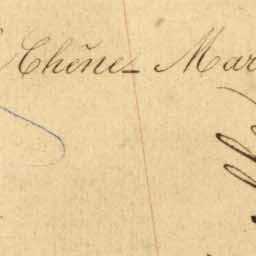 Chêne - Mar